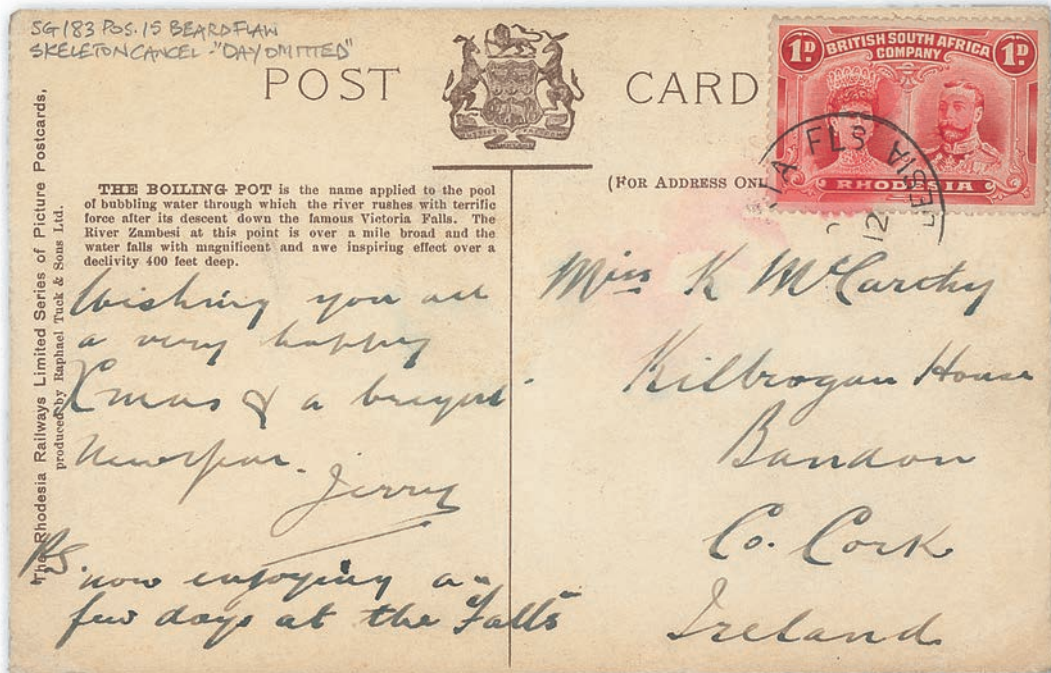 SG 183 POS. 15 BEARD FLAW
SKELETON CANCEL - "DAY OMITTED"
POST CARD
1D BRITISH SOUTH AFRICA 1D
COMPANY
RHODESIA
FLS
12
(FOR ADDRESS ONL
The Rhodesia Railways Limited Series of Picture Postcards,
produced by Raphael Tuck & Sons Ltd.
THE BOILING POT is the name applied to the pool
of bubbling water through which the river rushes with terrific
force after its descent down the famous Victoria Falls. The
River Zambesi at this point is over a mile broad and the
water falls with magnificent and awe inspiring effect over a
declivity 400 feet deep.
Wishing you all
a very happy
Xmas & a bright
New Year.
Jerry
P.S. now enjoying a
few days at the Falls
Miss K McCarthy
Kilbrogan House
Bandon
Co. Cork
Ireland